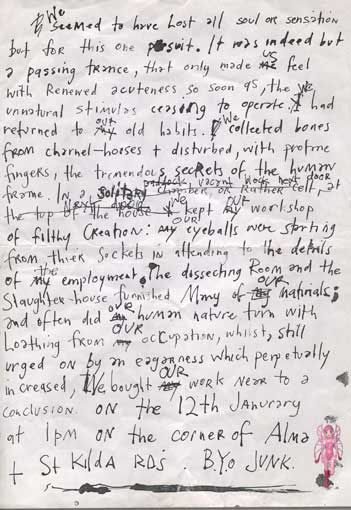 We seemed to have Lost all soul or sensation
but for this one pursuit. It was indeed but
a passing trance, that only made us feel
with Renewed acuteness so soon as, the
unnatural stimulus ceasing to operate, We had
returned to our old habits. We collected bones
from charnel-houses + disturbed, with profane
fingers, the tremendous secrets of the human
frame. In a solitary paddock, vacant block next door
chamber, OR Rather cell, at
the top of the house We kept OUR workshop
of filthy Creation: OUR eyeballs were starting
from their sockets in attending to the details
of the employment. The dissecting Room and the
Slaughter-house furnished Many of OUR materials;
and often did OUR human nature turn with
Loathing from OUR occupation, whilst, still
urged on by an eagarness which perpetually
increased, We bought OUR work near to a
conclusion. ON the 12th Janurary
at 1pm ON the corner of Alma
+ St Kilda RDs B.Y.O JUNK.